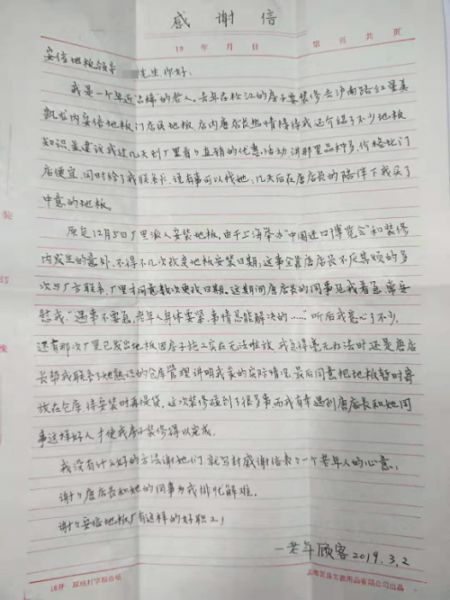 感谢信
19 年 月 日 第 页 共 页
安信地板领导 先生你好:
我是一个年近古稀的老人,去年在松江的房子要装修去沪南路红星美
凯龙内安信地板门店选地板,店内唐店长热情接待我还介绍了不少地板
知识并建议我过几天到厂里看,直销的优惠活动,讲那里品种多,价格比门
店便宜,同时给了我联系卡,说有事可以找她,几天后在唐店长的陪伴下我买了
中意的地板。
原定12月5日厂里派人安装地板,由于上海举办“中国进口博览会”和装修
内发生的意外,不得不几次改变地板安装日期,这事全靠唐店长不厌其烦的多
次与厂方联系,厂里才同意数次更改日期。这期间唐店长的同事见我着急,常安
慰我“遇事不要急,老年人身体要紧,事情总能解决的……”听后我宽心了不少,
还有那次厂里已发出地板因房子施工实在无法堆放,我急得毫无办法时还是唐店
长帮我联系当地熟悉的仓库管理,讲明我家的实际情况,最后同意把地板暂时寄
放在仓库,待安装时再提货。这次装修碰到了很多事,而我有幸遇到唐店长和她同
事这样好人,才使我房子装修得以完成。
我没有什么好的方法谢她们,就写封感谢信表表一个老年人的心意,
谢谢唐店长和她的同事为我排忧解难。
谢谢安信地板厂有这样的好职工!
一老年顾客 2019.3.2